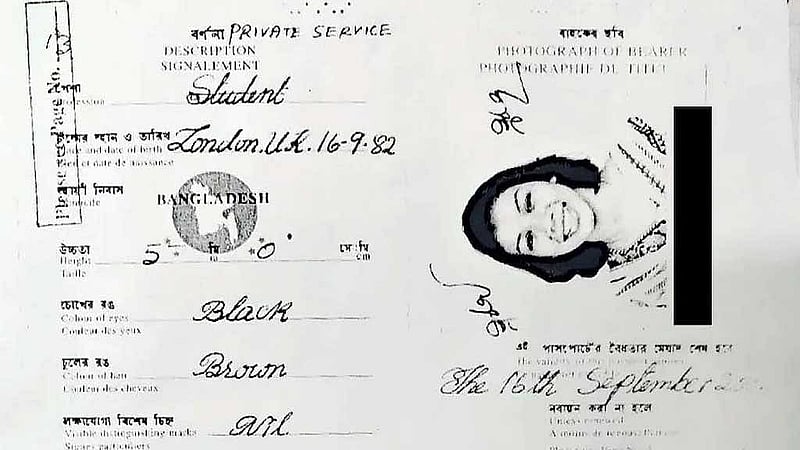 বর্ণনা PRIVATE SERVICE
DESCRIPTION
SIGNALEMENT
পেশা
Profession
Student
ও তারিখ
and date of birth
et date de naissance
London. U.K. 16-9-82
স্থায়ী নিবাস
BANGLADESH
উচ্চতা 5 মি 0 সেঃমিঃ
Height m cm
Taille
চোখের রঙ
Colour of eyes Black
Couleur des yeux
চুলের রঙ
Colour of hair Brown
Couleur des cheveux
লক্ষ্যযোগ্য বিশেষ চিহ্ন
Visible distinguishing marks Nil
Signes particuliers
Page No.
বাহকের ছবি
PHOTOGRAPH OF BEARER
PHOTOGRAPHIE DU TITU
এই পাসপোর্টের বৈধতার মেয়াদ শেষ হবে
The validity of
The 16th September
নবায়ন করা না হলে
Unless renewed
A moins de